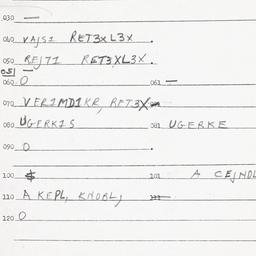 030 —
040 VAJS1 RET3XL3X.
050 REJT1 RET3XL3X.
051 —
060 0 061 —
070 VER1MD1KR, RET3X
080 UGERKIS 081 UGERKE
090 0 .
100 $ 101 A CEJNDL
110 A KEPL, KNOBL,
120 0